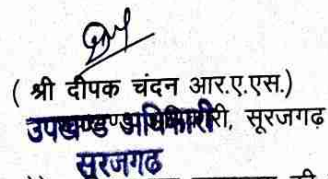 ( श्री दीपक चंदन आर.ए.एस.)
उपखण्ड अधिकारी, सूरजगढ़
उपखण्ड अधिकारी
सूरजगढ